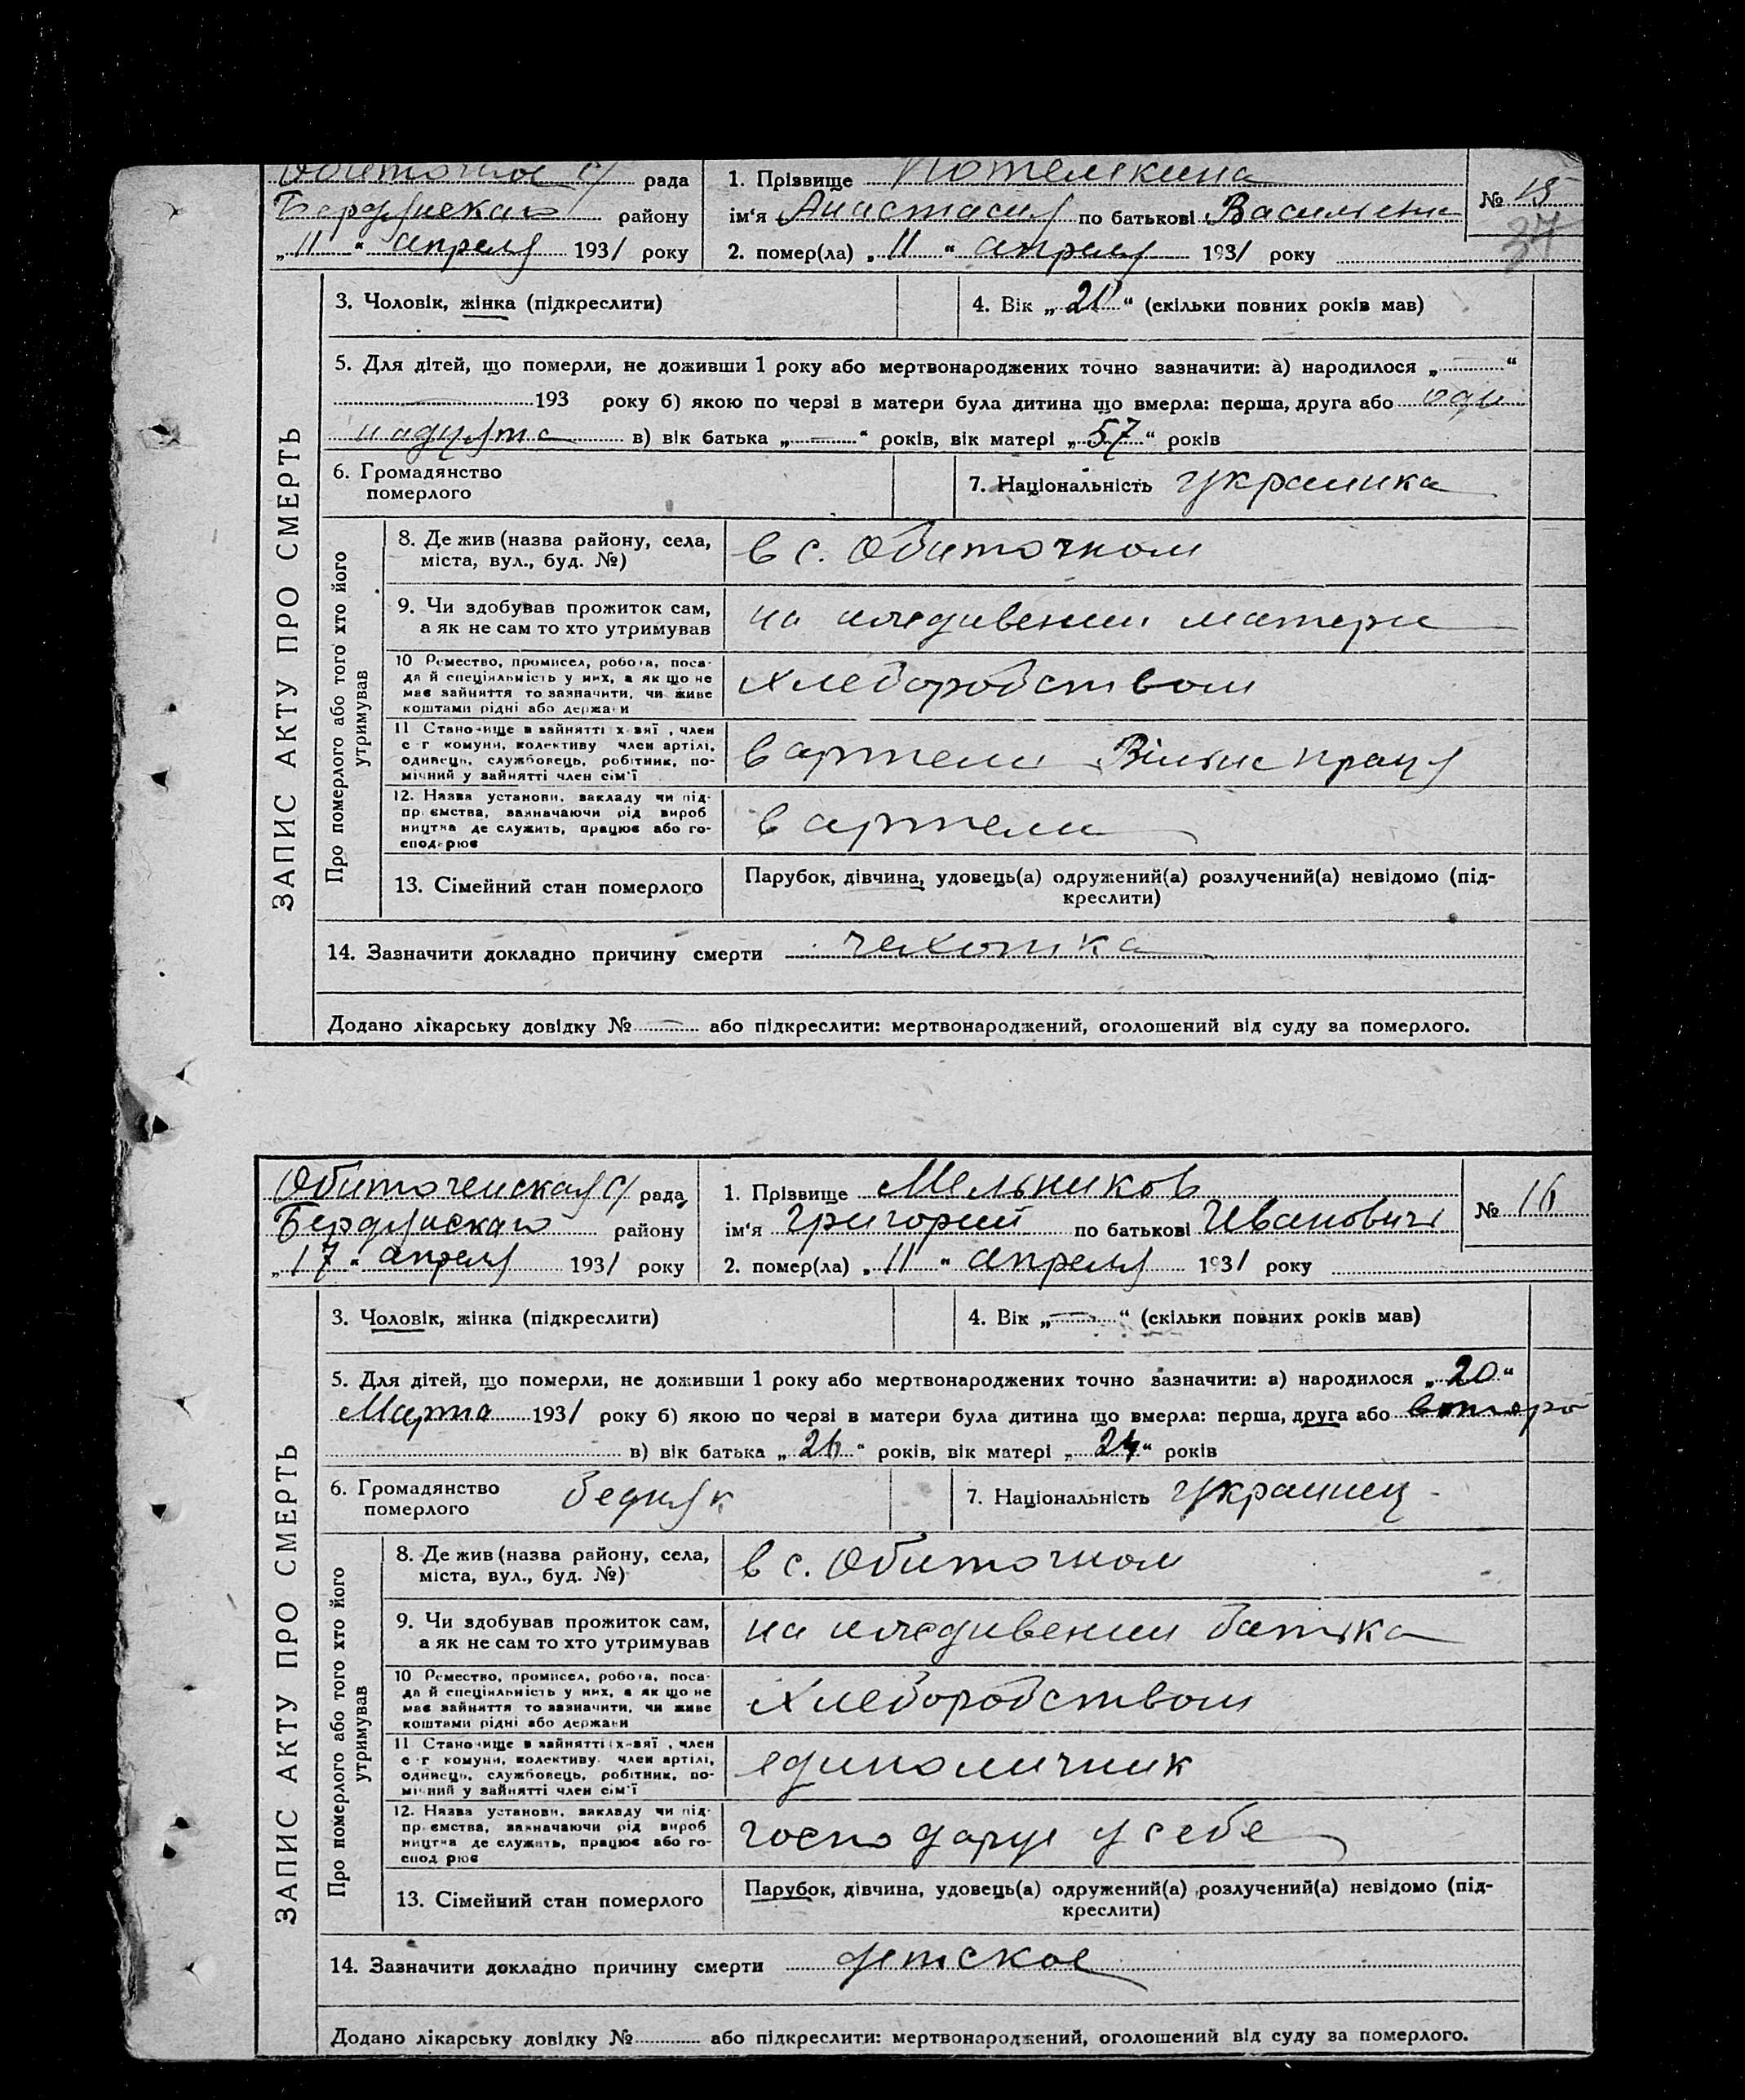 Обиточное с/ рада
Бердянскаго району
„11“ апреля 1931 року
1. Прізвище Потемкина
ім'я Анастасия по батькові Васильевна
2. помер(ла) „11“ апреля 1931 року
№ 15
37
ЗАПИС АКТУ ПРО СМЕРТЬ
3. Чоловік, жінка (підкреслити)
4. Вік „21“ (скільки повних років мав)
5. Для дітей, що померли, не доживши 1 року або мертвонароджених точно зазначити: а) народилося „—“
— 193 року б) якою по черзі в матери була дитина що вмерла: перша, друга або оди
надцята в) вік батька „—“ років, вік матері „57“ років
6. Громадянство
померлого
7. Національність украинка
Про померлого або того хто його
утримував
8. Де жив (назва району, села,
міста, вул., буд. №)
в с. Обиточном
9. Чи здобував прожиток сам,
а як не сам то хто утримував
на иждивении матери
10 Ремество, промисел, робота, поса-
да й спеціяльність у них, а як що не
має зайняття то зазначити, чи живе
коштами рідні або держави
Хлеборобством
11 Становище в зайнятті х-вяї, член
с-г комуни, колективу член артілі,
одинець, службовець, робітник, по-
мічний у зайнятті член сім'ї
в артели Вільне працу
12. Назва установи, закладу чи під-
пр ємства, зазначаючи рід вироб
ництва де служить, працює або го-
спод-рює
в артели
13. Сімейний стан померлого
Парубок, дівчина, удовець(а) одружений(а) розлучений(а) невідомо (під-
креслити)
14. Зазначити докладно причину смерти чахотка
Додано лікарську довідку № — або підкреслити: мертвонароджений, оголошений від суду за померлого.
Обиточенская с/ рада
Бердянскаго району
„17“ апреля 1931 року
1. Прізвище Мельников
ім'я Григорий по батькові Иванович
2. помер(ла) „11“ апреля 1931 року
№ 16
ЗАПИС АКТУ ПРО СМЕРТЬ
3. Чоловік, жінка (підкреслити)
4. Вік „—“ (скільки повних років мав)
5. Для дітей, що померли, не доживши 1 року або мертвонароджених точно зазначити: а) народилося „20“
Марта 1931 року б) якою по черзі в матери була дитина що вмерла: перша, друга або второ
в) вік батька „26“ років, вік матері „24“ років
6. Громадянство
померлого
бедняк
7. Національність украинец
Про померлого або того хто його
утримував
8. Де жив (назва району, села,
міста, вул., буд. №)
в с. Обиточном
9. Чи здобував прожиток сам,
а як не сам то хто утримував
на иждивении батька
10 Ремество, промисел, робота, поса-
да й спеціяльність у них, а як що не
має зайняття то зазначити, чи живе
коштами рідні або держави
Хлеборобством
11 Становище в зайнятті х-вяї, член
с-г комуни, колективу член артілі,
одинець, службовець, робітник, по-
мічний у зайнятті член сім'ї
единоличник
12. Назва установи, закладу чи під-
пр ємства, зазначаючи рід вироб
ництва де служить, працює або го-
спод рює
господарує у себе
13. Сімейний стан померлого
Парубок, дівчина, удовець(а) одружений(а) розлучений(а) невідомо (під-
креслити)
14. Зазначити докладно причину смерти детское
Додано лікарську довідку № або підкреслити: мертвонароджений, оголошений від суду за померлого.